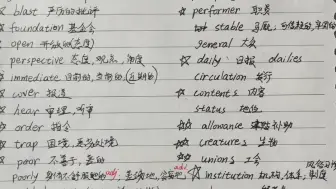 ☆ blast 严厉的批评
☆ foundation 基金会
open 开放的(态度)
perspective 态度,观点,角度
☆ immediate 目前的,当前的,(近期的)
☆ cover 报道
☆ hear 审理,听审
☆ order 指令
☆ trap 困境,恶劣处境
☆ poor 不善于,差的
poorly 身体不舒服地 adj.
☆ performer 职责
☆ stable 马厩
general 大众
☆ daily: 日报 dailies
☆ circulation 发行
☆ contents 内容
status 地位
☆☆ allowance 补助
☆☆ creatures 生物
☆☆ unions 工会
☆☆ institution 机构,体系,制度